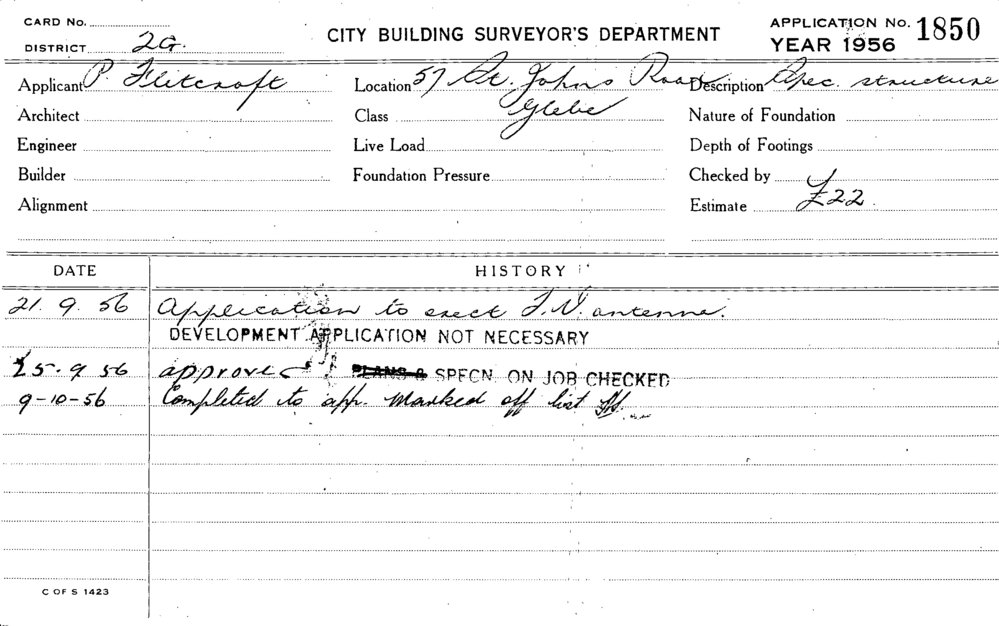 CARD No.
DISTRICT 2G.
CITY BUILDING SURVEYOR'S DEPARTMENT
APPLICATION No. 1850
YEAR 1956
Applicant P. Flitcroft Location 57 St. Johns Road Description Spec. structure
Architect Class Glebe Nature of Foundation
Engineer Live Load Depth of Footings
Builder Foundation Pressure Checked by
Alignment Estimate £22.
DATE HISTORY
21. 9. 56 Application to erect T.V. antenna.
DEVELOPMENT APPLICATION NOT NECESSARY
25. 9 56 approved PLANS & SPECN. ON JOB CHECKED
9-10-56 Completed to app. Marked off list
C OF S 1423